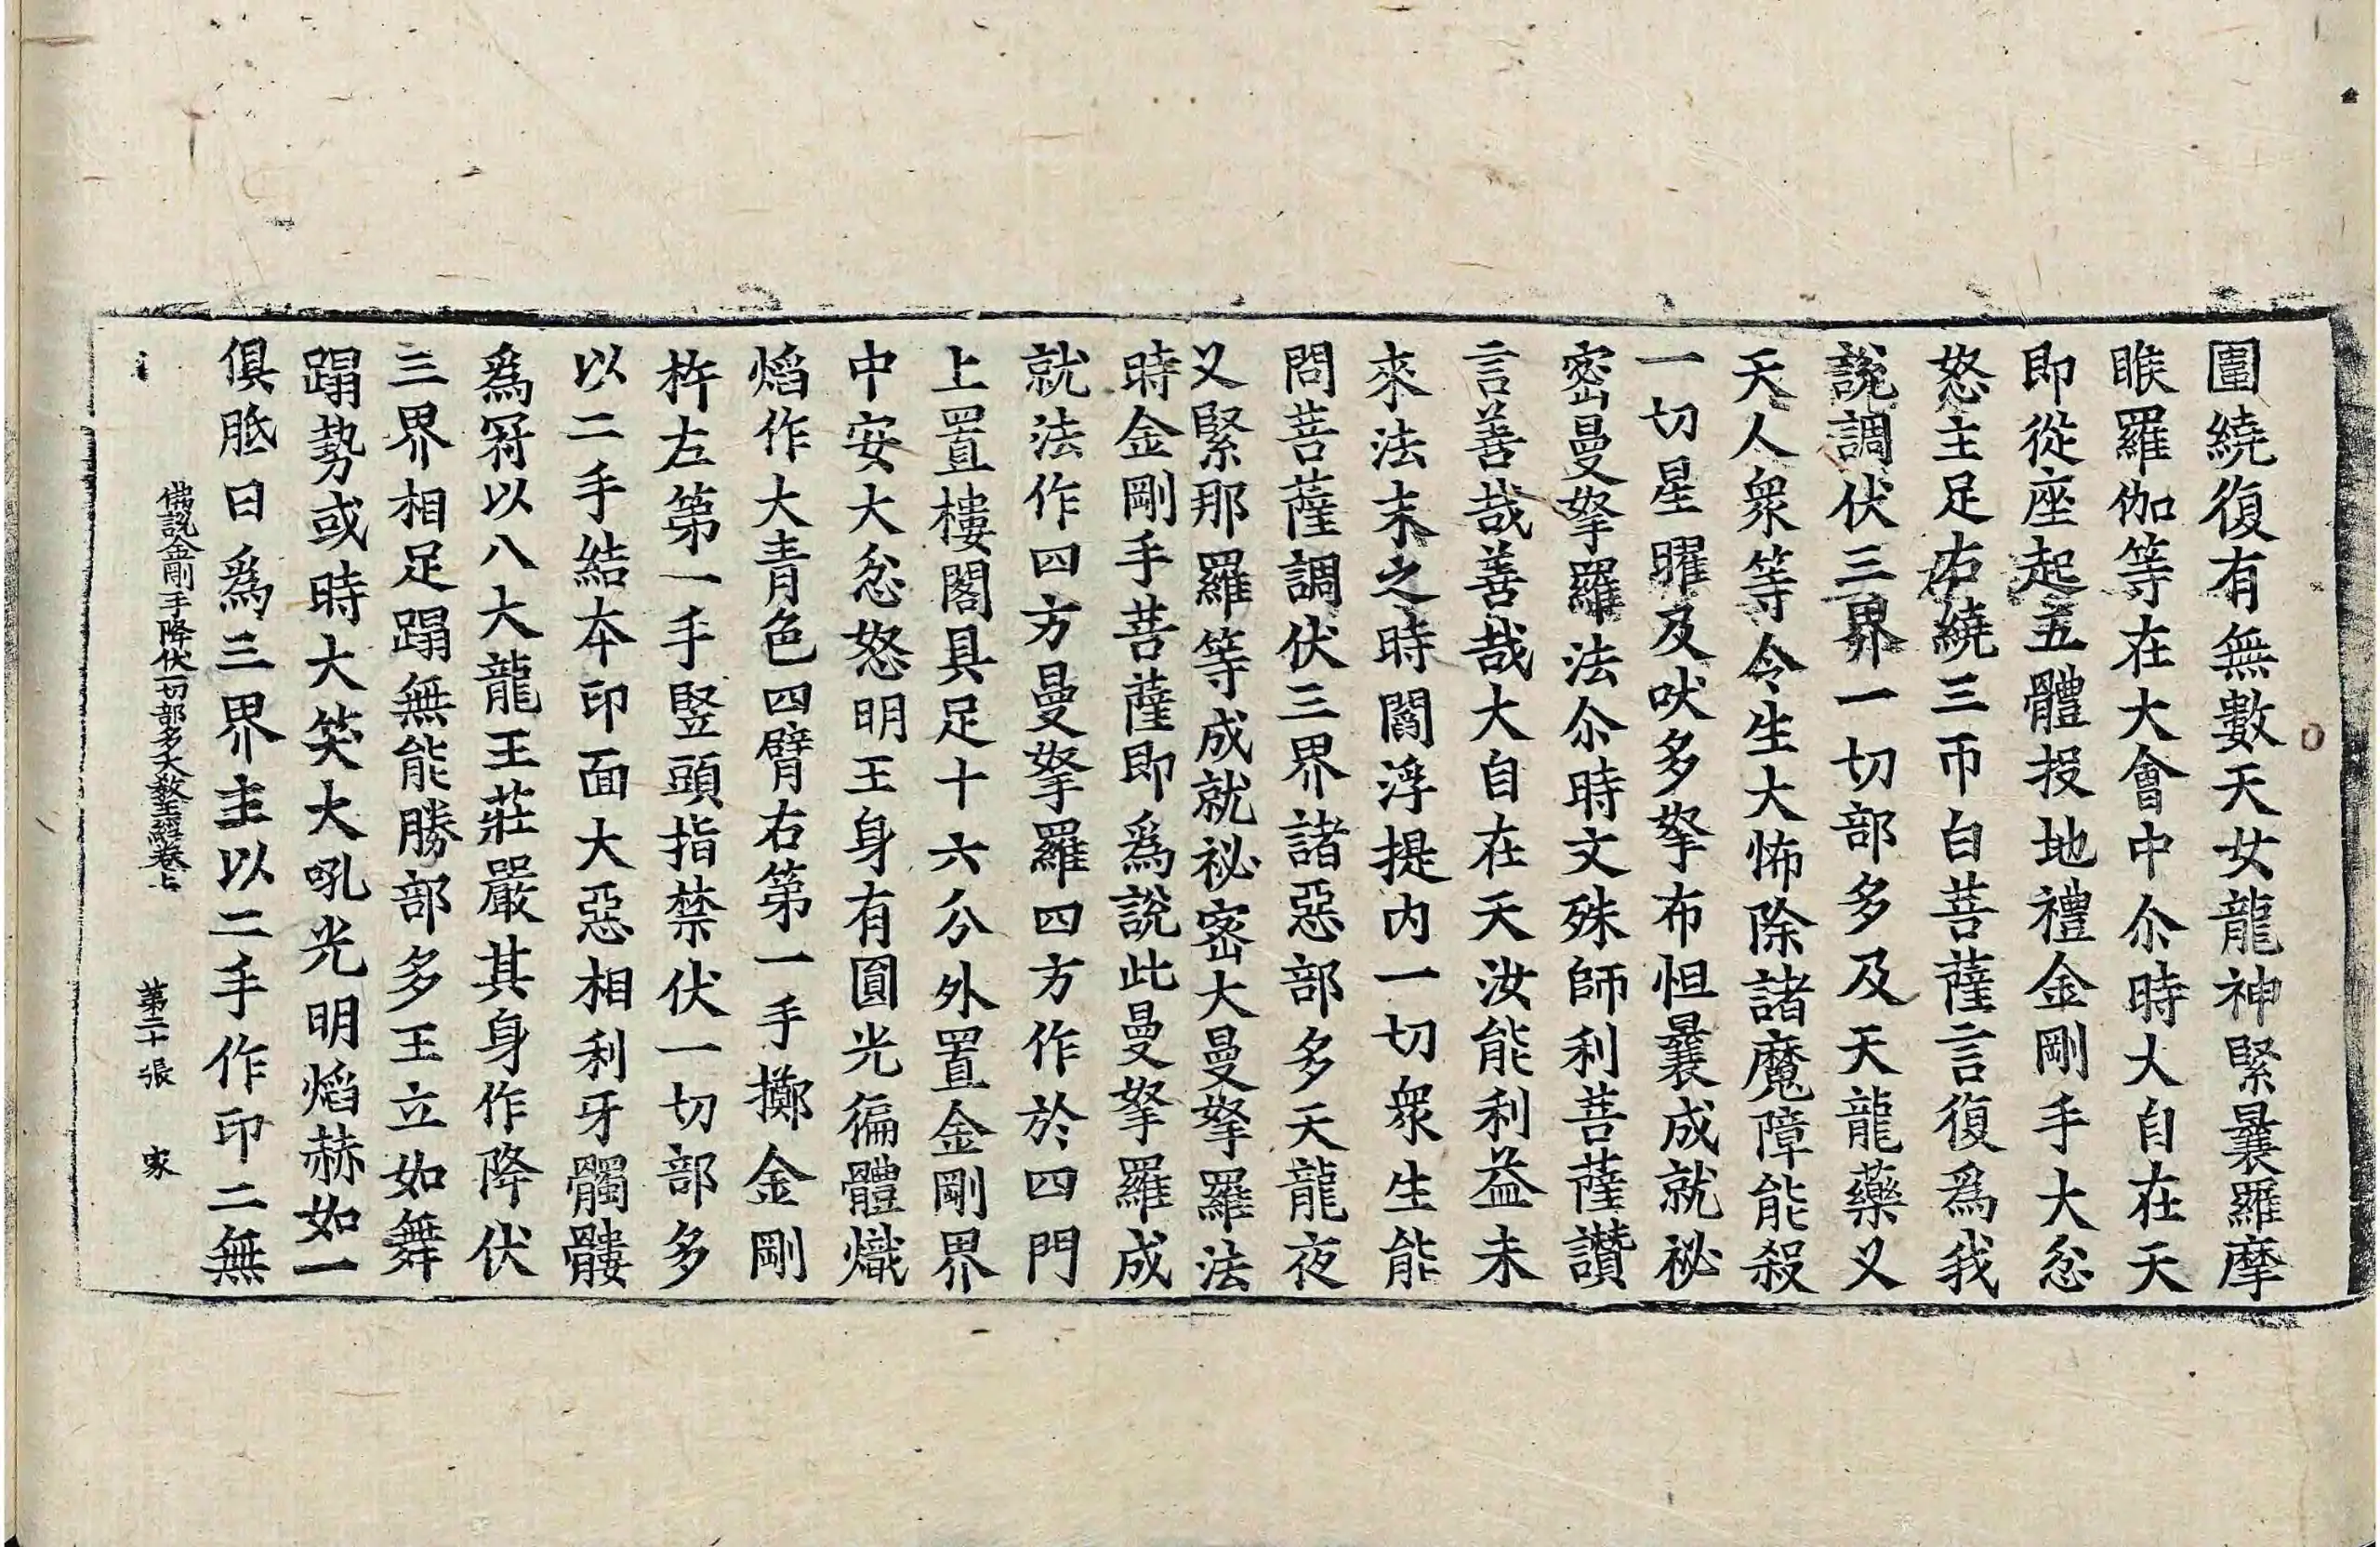 圍繞復有無數天女龍神緊曩羅摩
睺羅伽等在大會中尒時大自在天
即從座起五體投地禮金剛手大忿
怒主足右繞三帀白菩薩言復爲我
說調伏三界一切部多及天龍藥叉
天人衆等令生大怖除諸魔障能殺
一切星曜及吠多拏布怛曩成就祕
密曼拏羅法尒時文殊師利菩薩讚
言善哉善哉大自在天汝能利益未
來法末之時閻浮提内一切衆生能
問菩薩調伏三界諸惡部多天龍夜
叉緊那羅等成就祕密大曼拏羅法
時金剛手菩薩即爲說此曼拏羅成
就法作四方曼拏羅四方作於四門
上置樓閣具足十六分外置金剛界
中安大忿怒明王身有圓光徧體熾
焰作大青色四臂右第一手擲金剛
杵左第一手竪頭指禁伏一切部多
以二手結本印面大惡相利牙髑髏
爲冠以八大龍王莊嚴其身作降伏
三界相足蹋無能勝部多王立如舞
蹋勢或時大笑大吼光明焰赫如一
俱胝日爲三界主以二手作印二無
佛說金剛手降伏一切部多大教王經卷上　第二十張　家